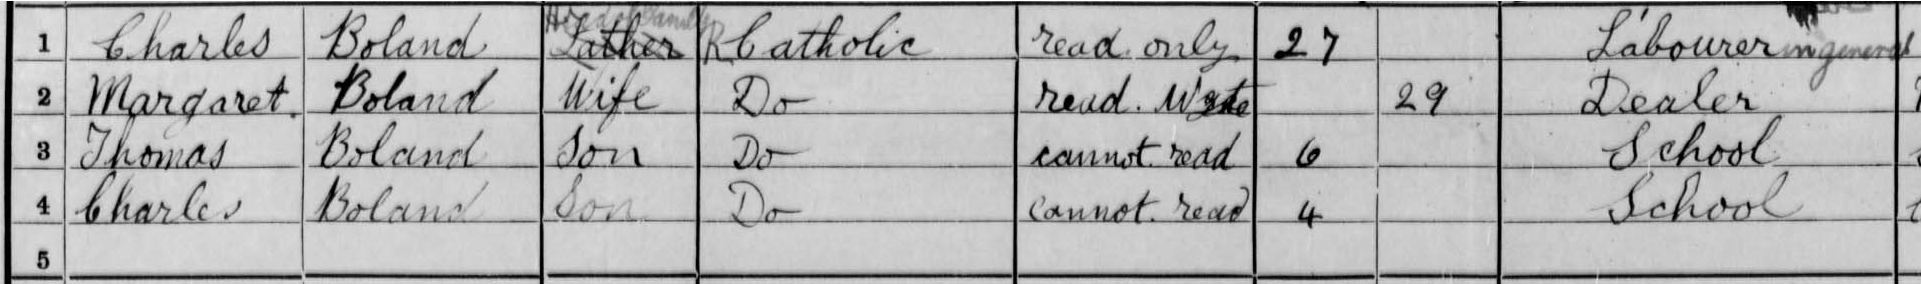 Head of Family
1 Charles Boland Father R Catholic read only 27 Labourer in general
2 Margaret. Boland Wife Do read. Write 29 Dealer
3 Thomas Boland Son Do cannot. read 6 School
4 Charles Boland Son Do cannot. read 4 School
5